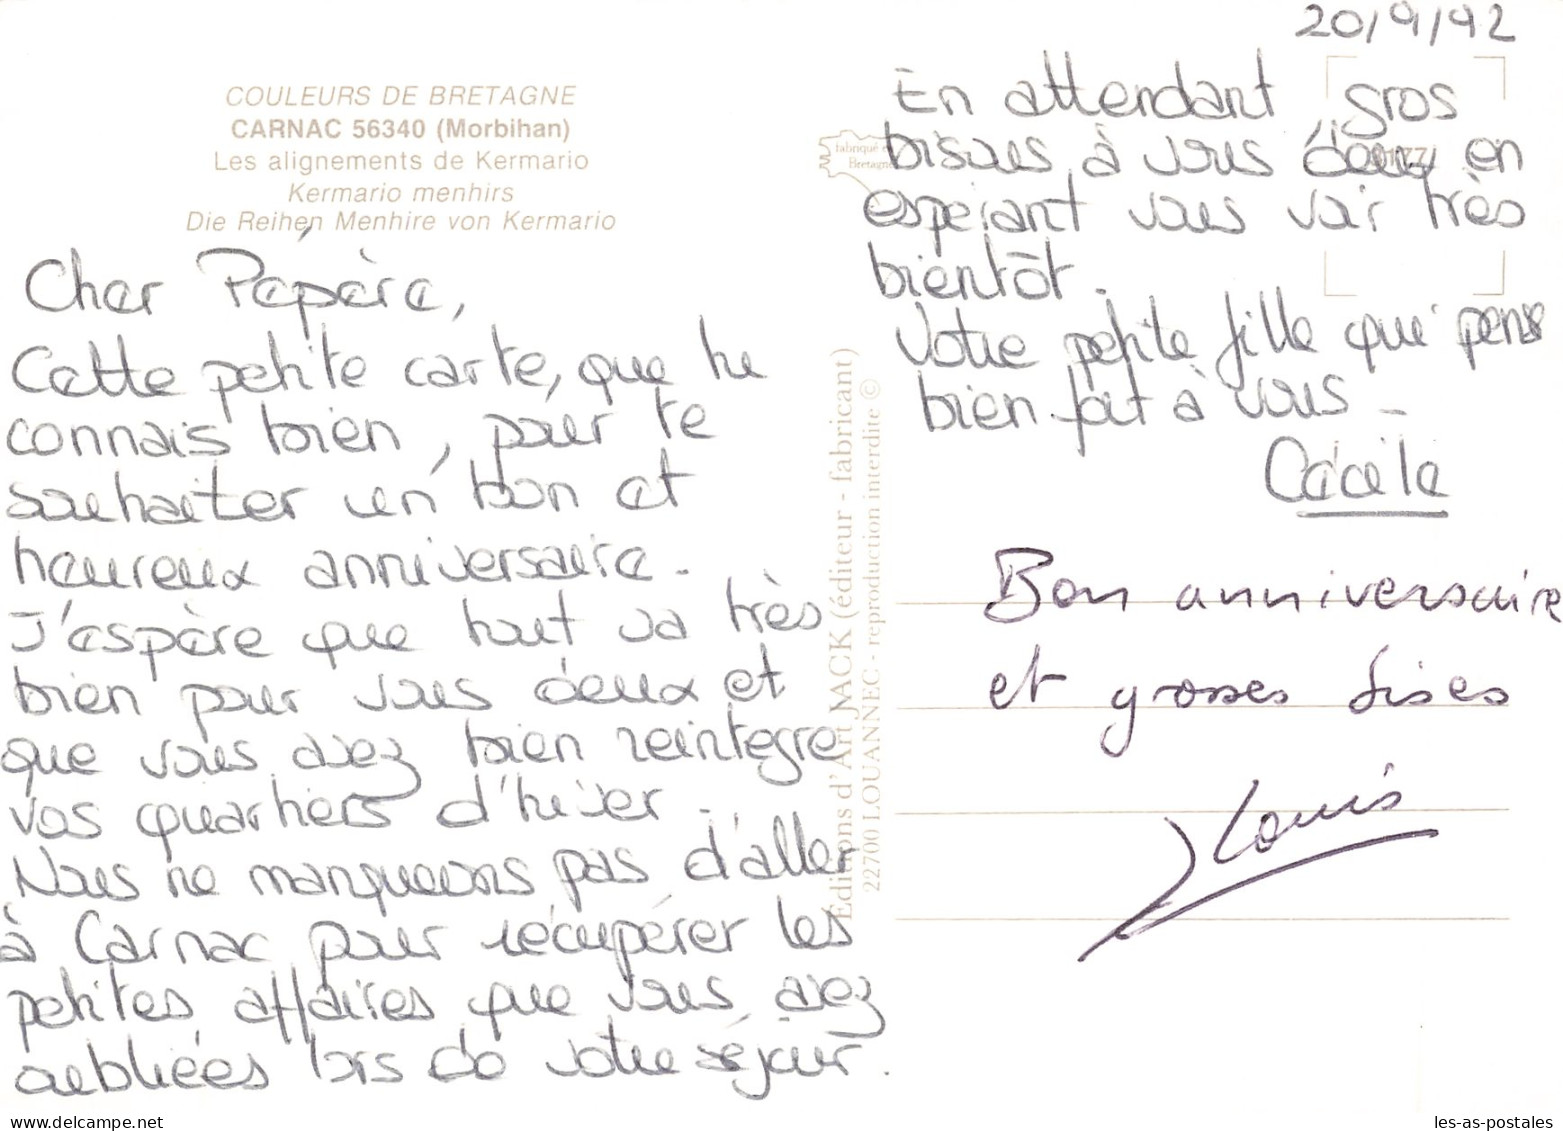 COULEURS DE BRETAGNE
CARNAC 56340 (Morbihan)
Les alignements de Kermario
Kermario menhirs
Die Reihen Menhire von Kermario
Cher Pépère,
Cette petite carte, que tu
connais bien, pour te
souhaiter un bon et
heureux anniversaire.
J'espère que tout va très
bien pour vous deux et
que vous avez bien reintegre
vos quartiers d'hiver.
Nous ne manquerons pas d'aller
à Carnac pour récupérer les
petites affaires que vous avez
oubliées lors de votre séjour.
Éditions d'Art JACK (éditeur - fabricant)
22700 LOUANNEC - reproduction interdite ©
fabriqué en
Bretagne
20/9/92
En attendant gros
bisous à vous deux en
espérant vous voir très
bientôt.
Votre petite fille qui pense
bien fort à vous -
Cécile
Bon anniversaire
et grosses bises
Louis
les-as-postales